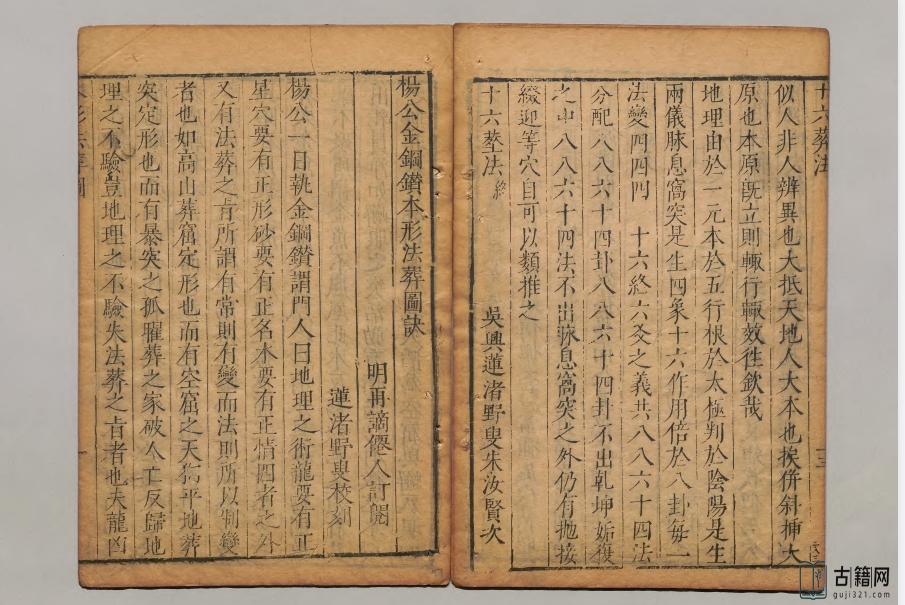 十六葬法
似人非人辨異也大抵天地人大本也挨併斜揷大
原也本原旣立則輙行輙效徃欽哉
地理由於一元本於五行根於太極判於陰陽是生
兩儀脉息窩突是生四象十六作用倍於八卦每一
法變四四四 十六終六爻之義共八八六十四法
分配八八六十四卦八八六十四卦不出乾坤姤復
之中八八六十四法不出脉息窩突之外仍有抛接
綴迎等穴自可以類推之
吳興蓮渚野叟朱汝賢次
十六塟法 終
楊公金鋼鑚本形法葬圖訣
明再謫僊人訂
蓮渚野叟校刻
楊公一日執金鋼鑚謂門人曰地理之術龍要有正
星穴要有正形砂要有正名水要有正情四者之外
又有法葬之肯所謂有常則有變而法則所以制變
者也如高山葬窟定形也而有空窟之天狗平地葬
突定形也而有暴突之孤腥葬之家破人亡反歸地
理之不驗豈地理之不驗失法葬之肯者也夫龍凶
古籍网
guji321.com